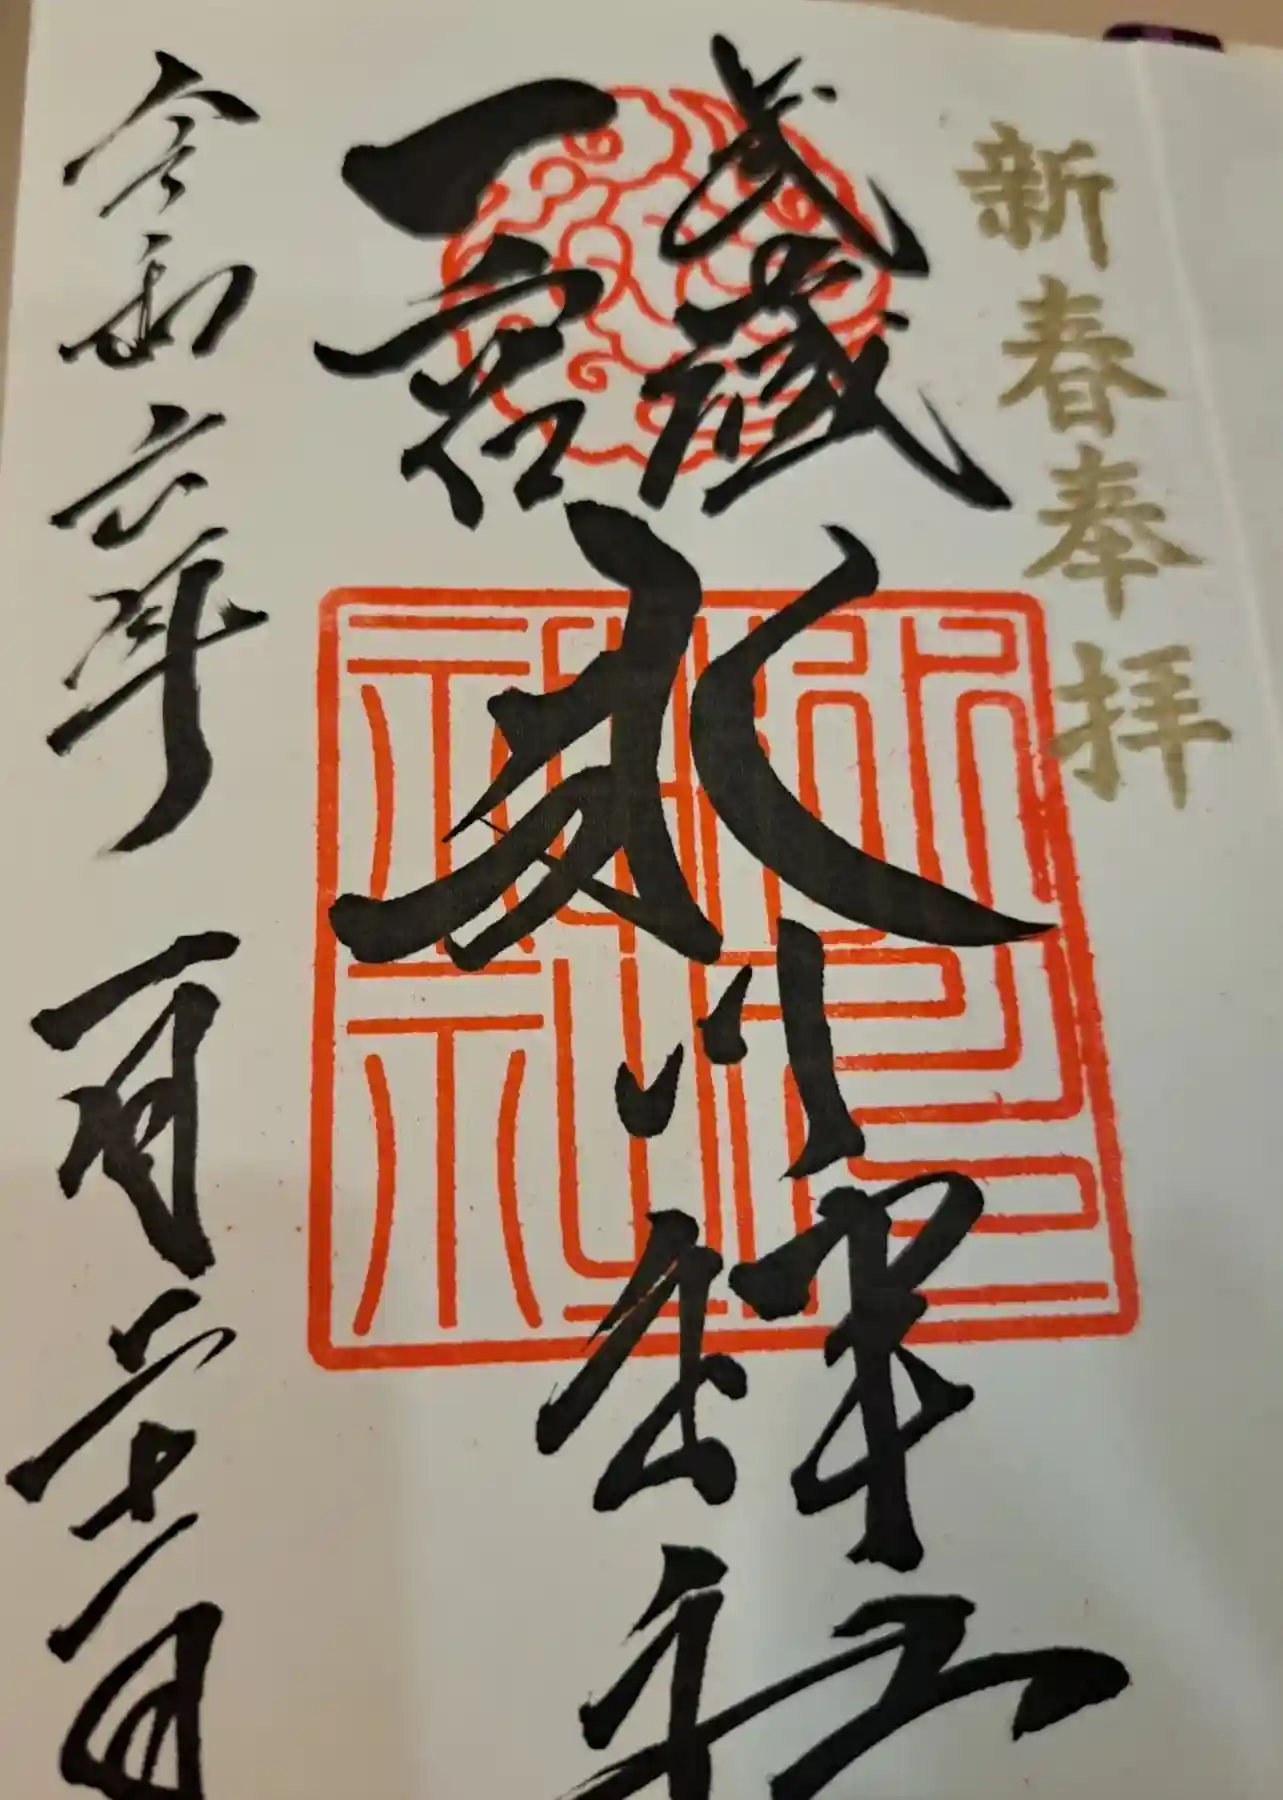 新春奉拝
武蔵
一宮
氷川神社
令和六年一月二十一日